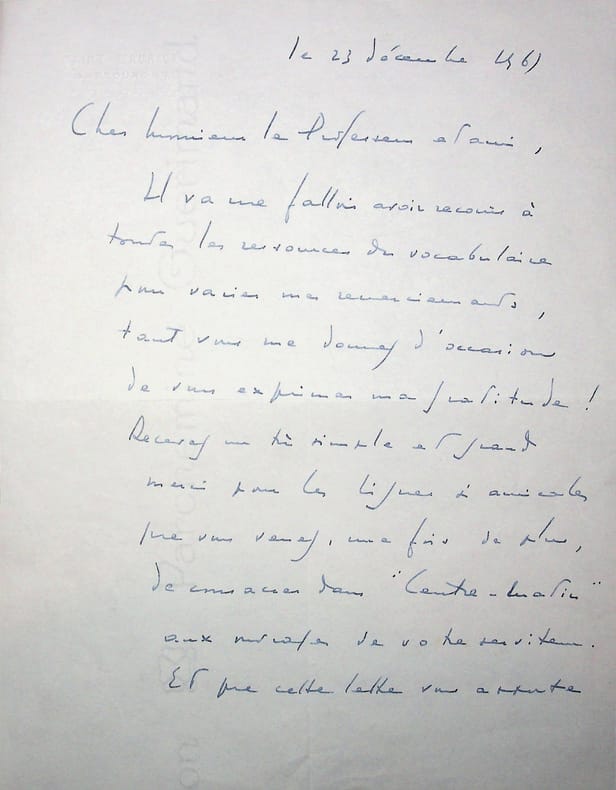 le 23 décembre 1961
Cher Monsieur le Professeur et ami,
Il va me falloir avoir recours à
toutes les ressources du vocabulaire
pour varier mes remerciements,
tant vous me donnez d'occasions
de vous exprimer ma gratitude !
Recevez un très simple et grand
merci pour les lignes si amicales
que vous venez, une fois de plus,
de consacrer dans "Centre-Matin"
aux ouvrages de votre serviteur.
Et que cette lettre vous apporte